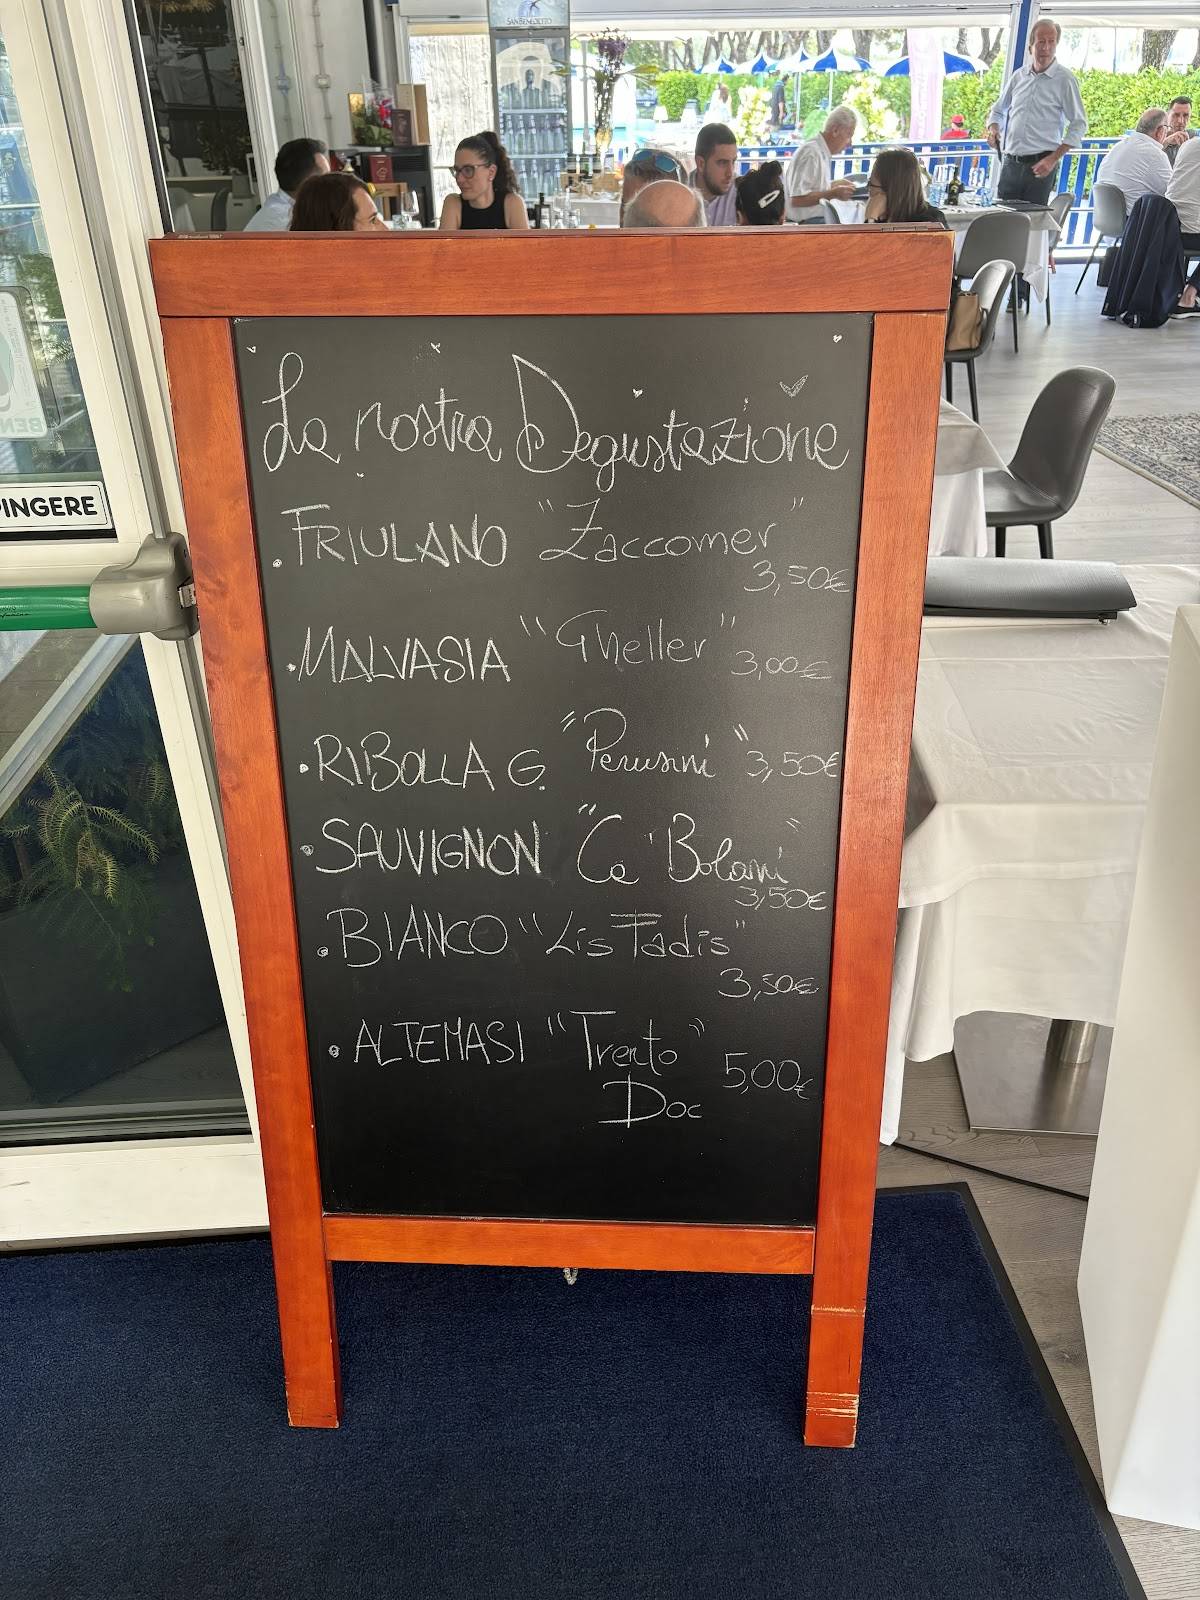 SAN BENEDETTO
PINGERE
La nostra Degustazione
. FRIULANO "Zaccomer"
3,50€
. MALVASIA "Gheller" 3,00€
. RIBOLLA G. "Perusini" 3,50€
. SAUVIGNON "Ca' Bolani"
3,50€
. BIANCO "Lis Fadis"
3,50€
. ALTEMASI "Trento"
Doc 5,00€